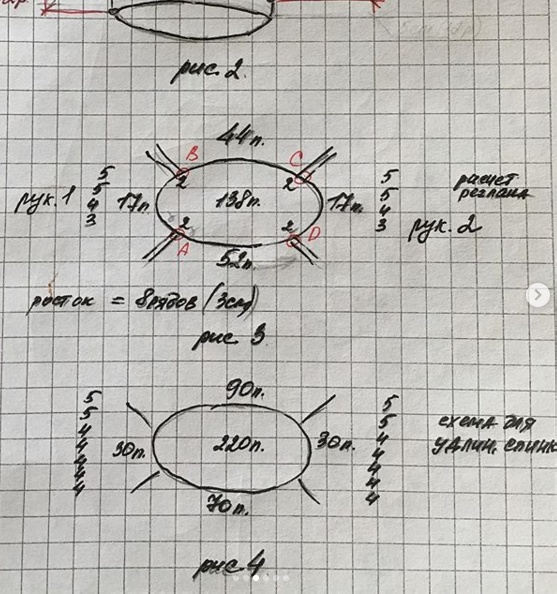 рис. 2.
44п.
B
C
5
5
4
3
2
2
5
5
4
3
рук. 1
17п.
138п.
17п.
расчет
реглана
рук. 2
2
2
A
D
52п.
росток = 8рядов (3см)
рис 3
90п.
5
5
4
4
4
4
4
5
5
4
4
4
4
4
30п.
220п.
30п.
схема для
удлин. спинк
70п.
рис 4